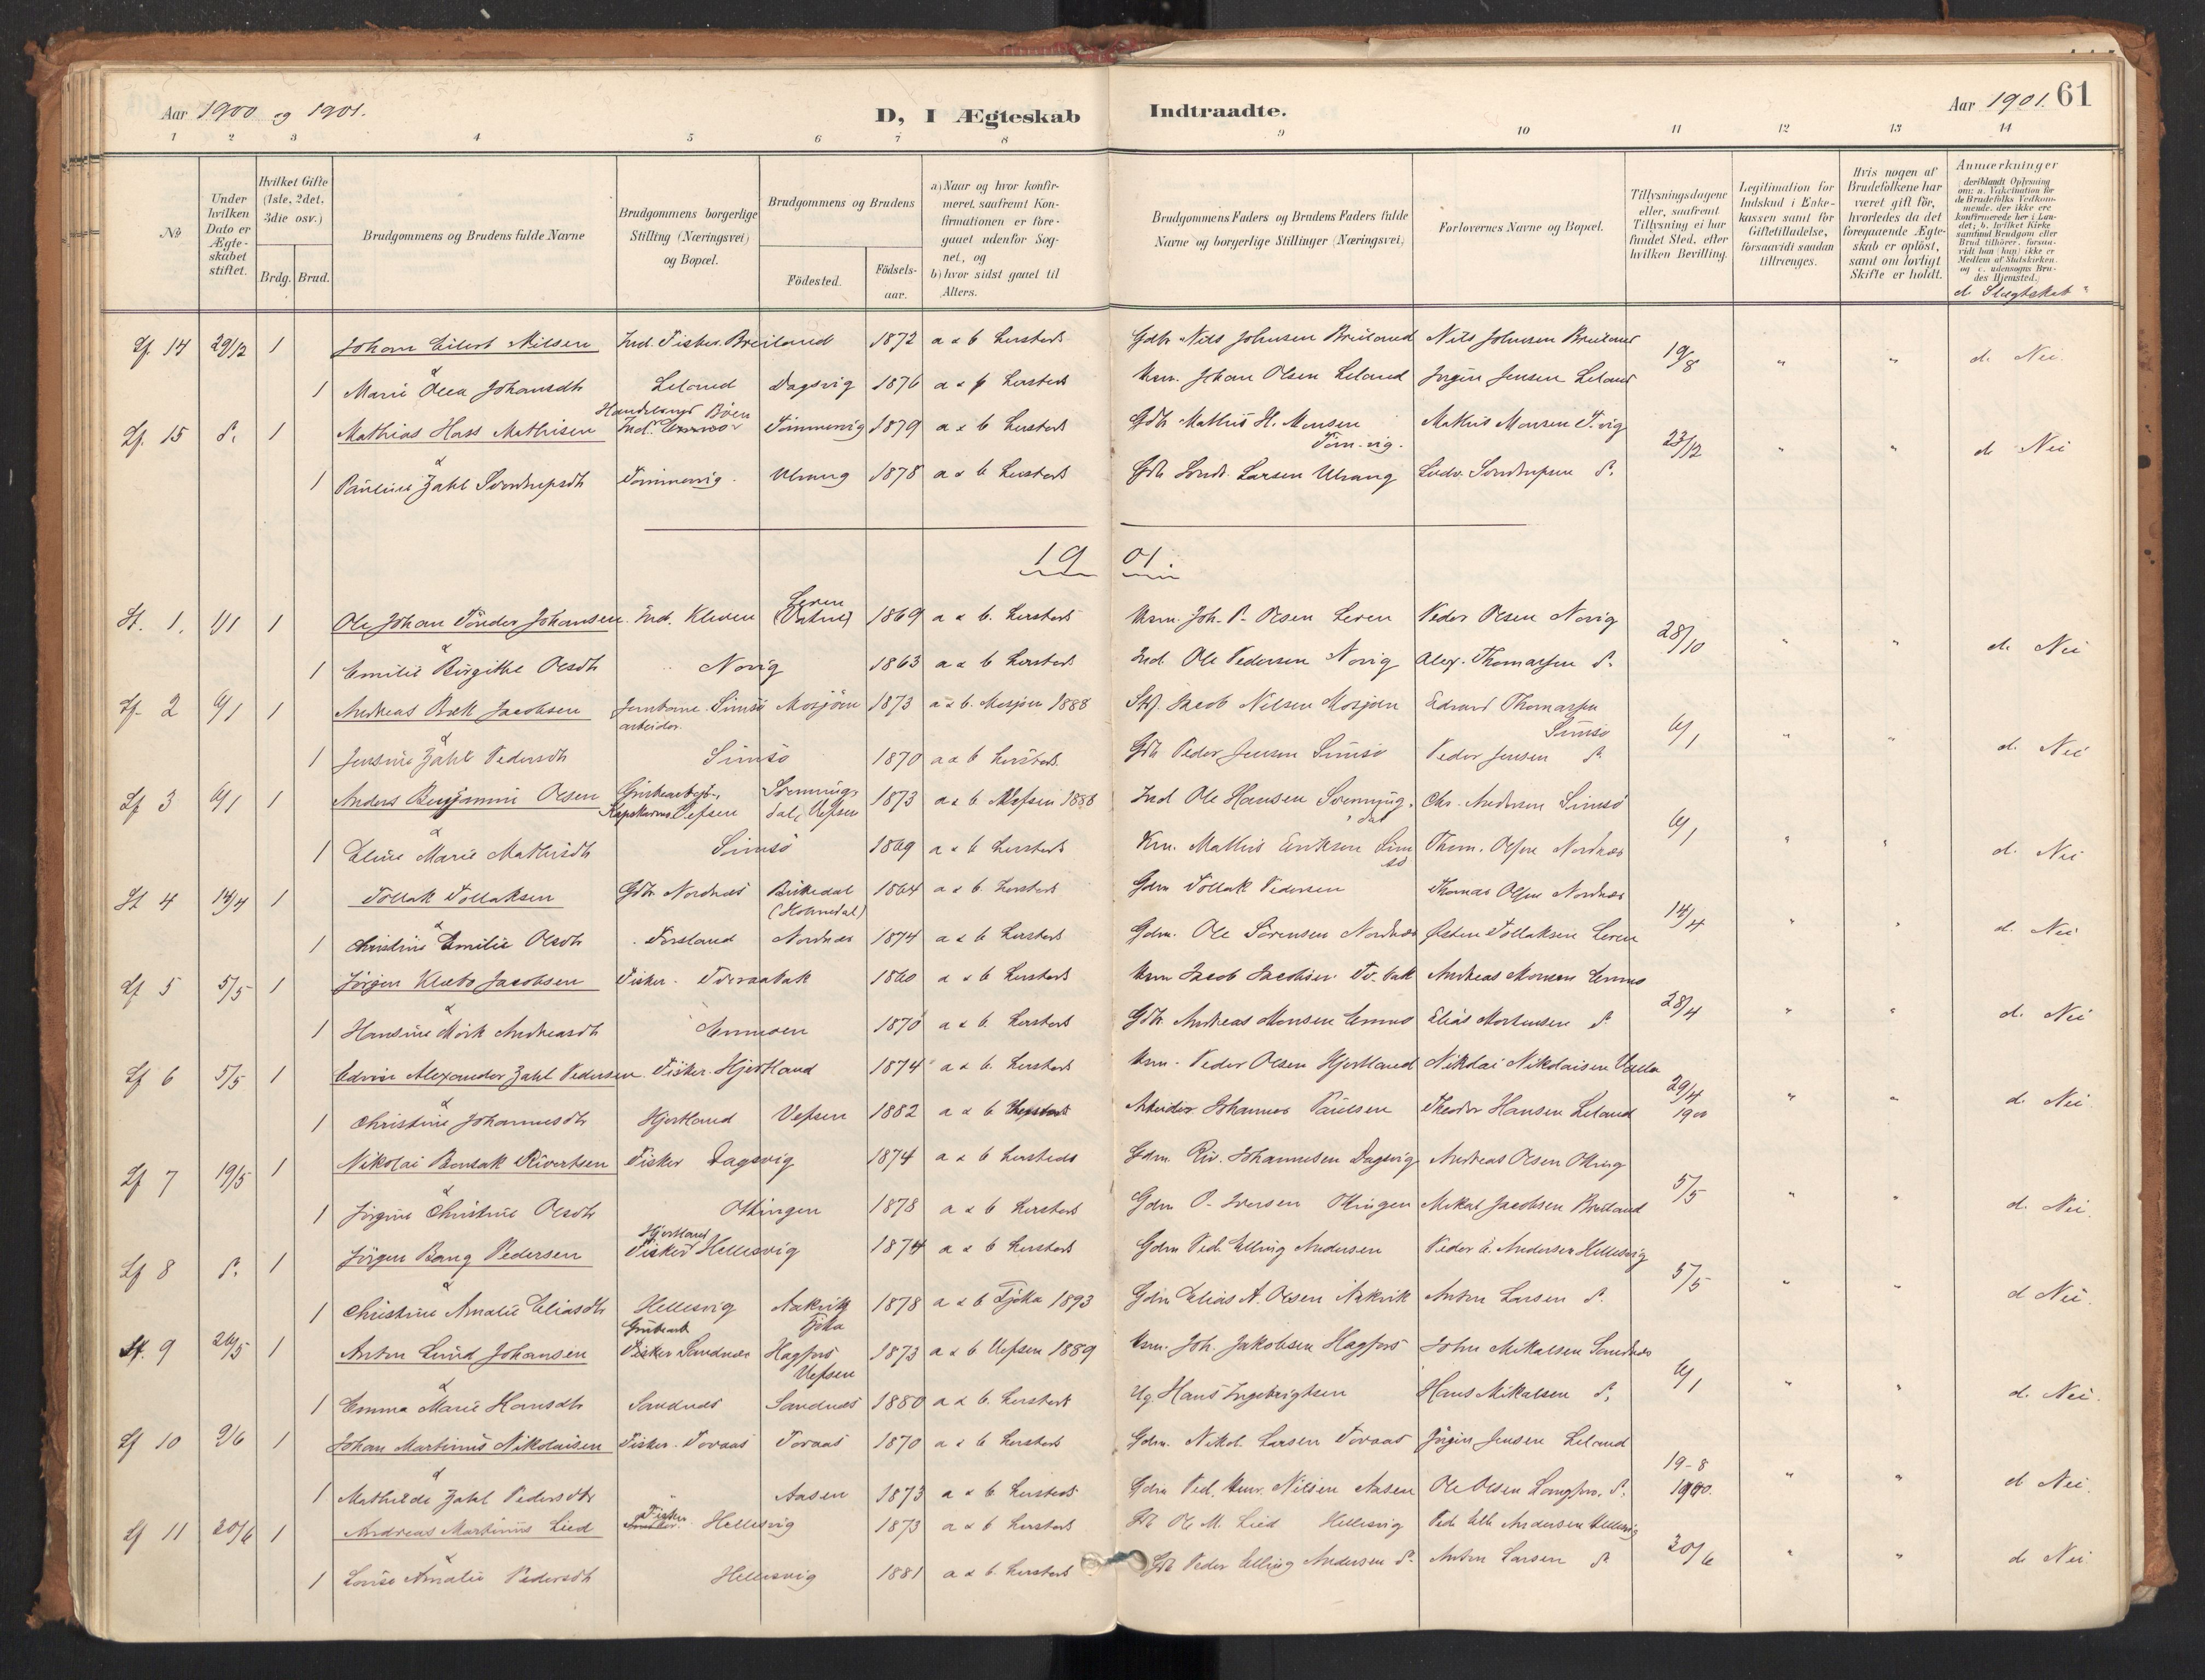 Aar 1900 og 1901.
D, I Ægteskab Indtraadte.
Aar 1901. 61
1 2 3 4 5 6 7 8 9 10 11 12 13 14
No
Under hvilken Dato er Ægteskabet stiftet.
Hvilket Gifte (1ste, 2det, 3die osv.)
Brdg. Brud.
Brudgommens og Brudens fulde Navne
Brudgommens borgerlige Stilling (Næringsvei) og Bopæl.
Brudgommens og Brudens
Födested.
Födselsaar.
a) Naar og hvor konfirmeret, saafremt Konfirmationen er foregaaet udenfor Sognet, og
b) hvor sidst gaaet til Alters.
Brudgommens Faders og Brudens Faders fulde Navne og borgerlige Stillinger (Næringsvei)
Forlovernes Navne og Bopæl.
Tillysningsdagene eller, saafremt Tillysning ei har fundet Sted, efter hvilken Bevilling.
Legitimation for Indskud i Enkekassen samt for Giftetilladelse, forsaavidt saadan tiltrænges.
Hvis nogen af Brudefolkene har været gift för, hvorledes da det foregaaende Ægteskab er oplöst, samt om lovligt Skifte er holdt.
Anmærkninger
deriblandt Oplysning om: a. Vakcination for de Brudefolks Vedkommende, der ikke ere konfirmerede her i Landet; b. hvilket Kirkesamfund Brudgom eller Brud tilhörer, forsaavidt han (hun) ikke er Medlem af Statskirken, og c. udensogns Brudes Hjemsted.
d. Slægtskab "
Lf. 14 29/12 1 Johan Eilert Nilsen Ind. Fisker. Breiland 1872 a & b Hersteds Gdbr Nils Johnsen Breiland Nils Johnsen Breiland 19/8 " " d. Nei.
& 1 Marie Olea Johansdtr Leland Dagsvig 1876 a & b Hersteds Husm. Johan Olsen Leland Jörgen Jensen Leland
Lf. 15 d. 1 Mathias Hass Mathisen Ind. Tömmervig 1879 a & b Hersteds Gdbr Mathis H. Monsen Töm.vig. Mathis Monsen T.vig 23/12 " " d. Nei
& 1 Pauline Zahl Sördrupsdtr Tömmervig. Ulvang 1878 a & b Hersteds Larsen Ulvang Ludv. d.
1901.
St. 1. 1/1 1 Ole Johan Tönder Johansen Ind. Kleven Leren 1869 a & b. Hersteds Husm. Joh. P. Olsen Leren Peder Olsen Novig 28/10 " " d. Nei
& 1 Emilie Birgithe Olsdtr " Novig 1863 a & b Hersteds Ind. Ole Pedersen Novig Alex. Thomassen d.
Lf. 2 6/1 1 Andreas Bæk Jacobsen Jernbanearbeider. Simsö Mosjöen 1873 a & b. Mosjöen 1888 Jacob Nilsen Mosjöen Edvard Thomassen Simsö 6/1 " " d. Nei
& 1 Jensine Zahl Pedersdtr Simsö 1870 a & b Hersteds. Gdbr Peder Jensen Simsö Peder Jensen d.
Lf 3 6/1 1 Anders Benjamin Olsen Grubearbeid., Vefsen dal, Vefsen 1873 a & b Vefsen 1888 Ind Ole Hansen Chr. Andersen Simsö 6/1 " " d. Nei
& 1 Eline Marie Mathisdtr Simsö 1869 a & b Hersteds Mathis Eriksen Simsö Thom. Olsen Nordnæs
St 4 14/4 1 Tollak Tollaksen Gdbr Nordnæs Birkedal 1864 a & b. Hersteds Gdm Tollak Pedersen Thomas Olsen Nordnæs 14/4 " " d. Nei
& 1 Christine Emilie Olsdtr Forsland Nordnæs 1874 a & b Hersteds Gdm. Ole Sörensen Nordnæs Östen Tollaksen Leren
Lf 5 5/5 1 Jörgen Klæbo Jacobsen Fisker. Tveraabak 1860 a & b Hersteds Husm Jacob Jacobsen Tv.bak Andreas Monsen Ennes 28/4 " " d. Nei
& 1 Hansine Mörk Andreasdtr 1870 a & b. Hersteds Gdbr Andreas Monsen Elias Mortensen d.
Lf 6 5/5 1 Edvin Alexander Zahl Pedersen Fisker. Hjertland 1874 a & b. Hersteds Husm. Peder Olsen Hjertland Nikolai Nikolaisen 29/4 1900 " " d. Nei.
& 1 Christine Johannesdtr Hjertland Vefsen 1882 a & b Hersteds Arbeider Johannes Paulsen Theodor Hansen Leland
Lf 7 19/5 1 Nikolai Bensak Rivertsen Fisker Dagsvig 1874 a & b Hersteds Gdm. Riv. Johannesen Dagsvig Andreas Olsen 5/5 " " d. Nei.
& 1 Jörgine Christine Olsdtr Ottingen 1878 a & b Hersteds Gdm O. Iversen Ottingen Mikal Jacobsen Breiland
Lf 8 d. 1 Jörgen Bang Pedersen Hjertland Fisker Hellesvig 1874 a & b Hersteds Gdm Ped. Elling Andersen Peder E. Andersen Hellesvig 5/5 " " d Nei.
& 1 Christine Amalie Eliasdtr Hellesvig Aakvik Tjöta 1878 a & b Tjötta 1893 Gdm Elias A. Olsen Aakvik Anton Larsen d.
Lf. 9 26/5 1 Anton Lund Johansen Grubearb Fisker Sandnæs Hagfors Vefsen 1873 a & b Vefsen 1889 Husm. Joh. Jakobsen Hagfors John Mikalsen Sandnæs 6/1 " " d. Nei.
& 1 Emma Marie Hansdtr Sandnæs Sandnæs 1880 a & b. Hersteds Ug. Hans Ingebrigtsen Hans Mikalsen d.
Lf 10 9/6 1 Johan Martinus Nikolaisen Fisker. Toraas Toraas 1870 a & b Hersteds Gdm. Nikol. Larsen Toraas Jörgen Jensen Leland 19-8 1900. " " d Nei.
& 1 Mathilde Zahl Pedersdtr " Aasen 1873 a & b Hersteds Gdm Ped. Nilsen Aasen Ole Olsen d.
Lf 11 20/6 1 Andreas Martinus Lied Fisker Hellesvig 1873 a & b Hersteds Ole M. Lied Hellesvig Ped. Ell. Andersen Hellesvig 20/6 " " d. Nei.
& 1 Lovise Amalie Pedersdtr Hellesvig 1881 a & b. Hersteds Gdb Peder Elling Andersen d. Anton Larsen d